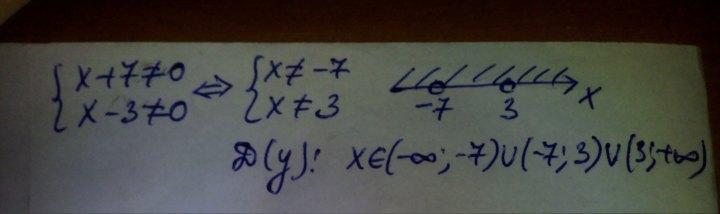 {x+7≠0 ⇔ {x≠-7
{x-3≠0 {x≠3
-7 3 x
D(y): x∈(-∞;-7)∪(-7;3)∪(3;+∞)